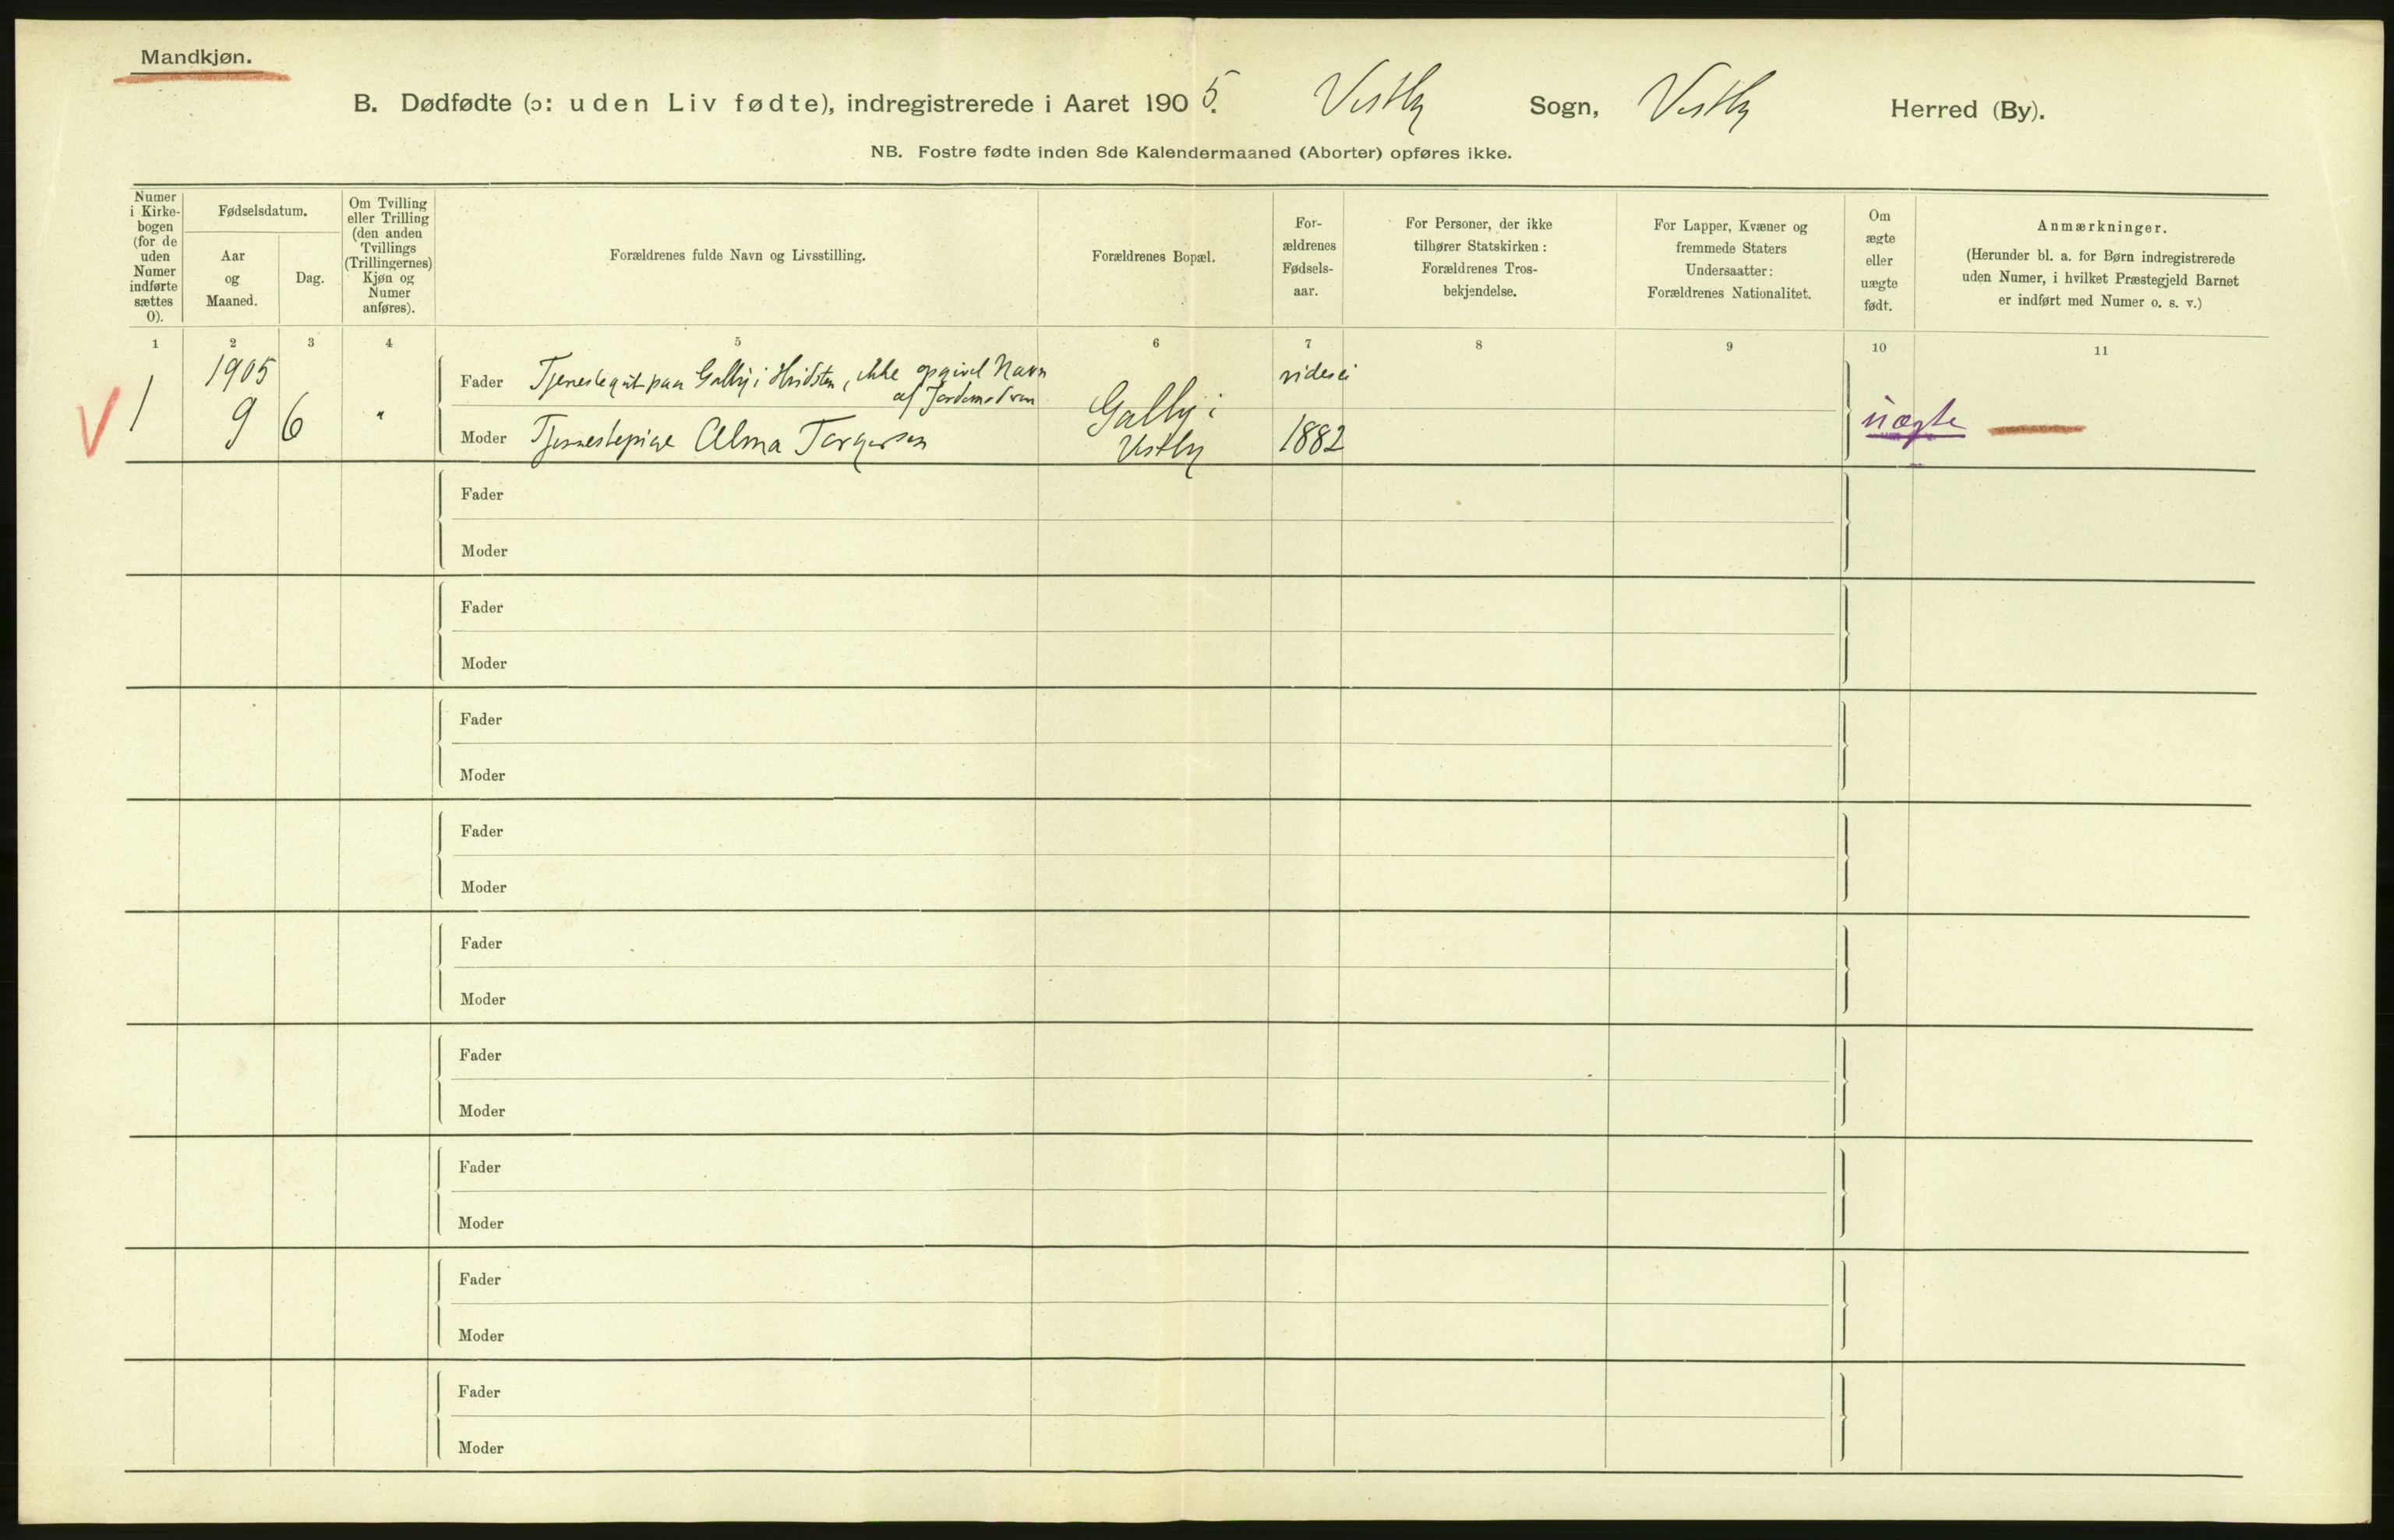 Mandkjøn.
B. Dødfødte (ɔ: uden Liv fødte), indregistrerede i Aaret 1905. Vestby Sogn, Vestby Herred (By).
NB. Fostre fødte inden 8de Kalendermaaned (Aborter) opføres ikke.
Numer
i Kirke-
bogen
(for de
uden
Numer
indførte
sættes
0).
Fødselsdatum.
Aar
og
Maaned.
Dag.
Om Tvilling
eller Trilling
(den anden
Tvillings
(Trillingernes)
Kjøn og
Numer
anføres).
Forældrenes fulde Navn og Livsstilling.
Forældrenes Bopæl.
For-
ældrenes
Fødsels-
aar.
For Personer, der ikke
tilhører Statskirken:
Forældrenes Tros-
bekjendelse.
For Lapper, Kvæner og
fremmede Staters
Undersaatter:
Forældrenes Nationalitet.
Om
ægte
eller
uægte
født.
Anmærkninger.
(Herunder bl. a. for Børn indregistrerede
uden Numer, i hvilket Præstegjeld Barnet
er indført med Numer o. s. v.)
1 2 3 4 5 6 7 8 9 10 11
1905
Fader Tjenestegut paa Galby i Hvidsten, ikke opgivet Navn
af Jordemoderen
vides ei
1 9 6 "
Galby i
Vestby
Moder Tjenestepige Alma Torgersen
1882
uægte
Fader
Moder
Fader
Moder
Fader
Moder
Fader
Moder
Fader
Moder
Fader
Moder
Fader
Moder
Fader
Moder
Fader
Moder